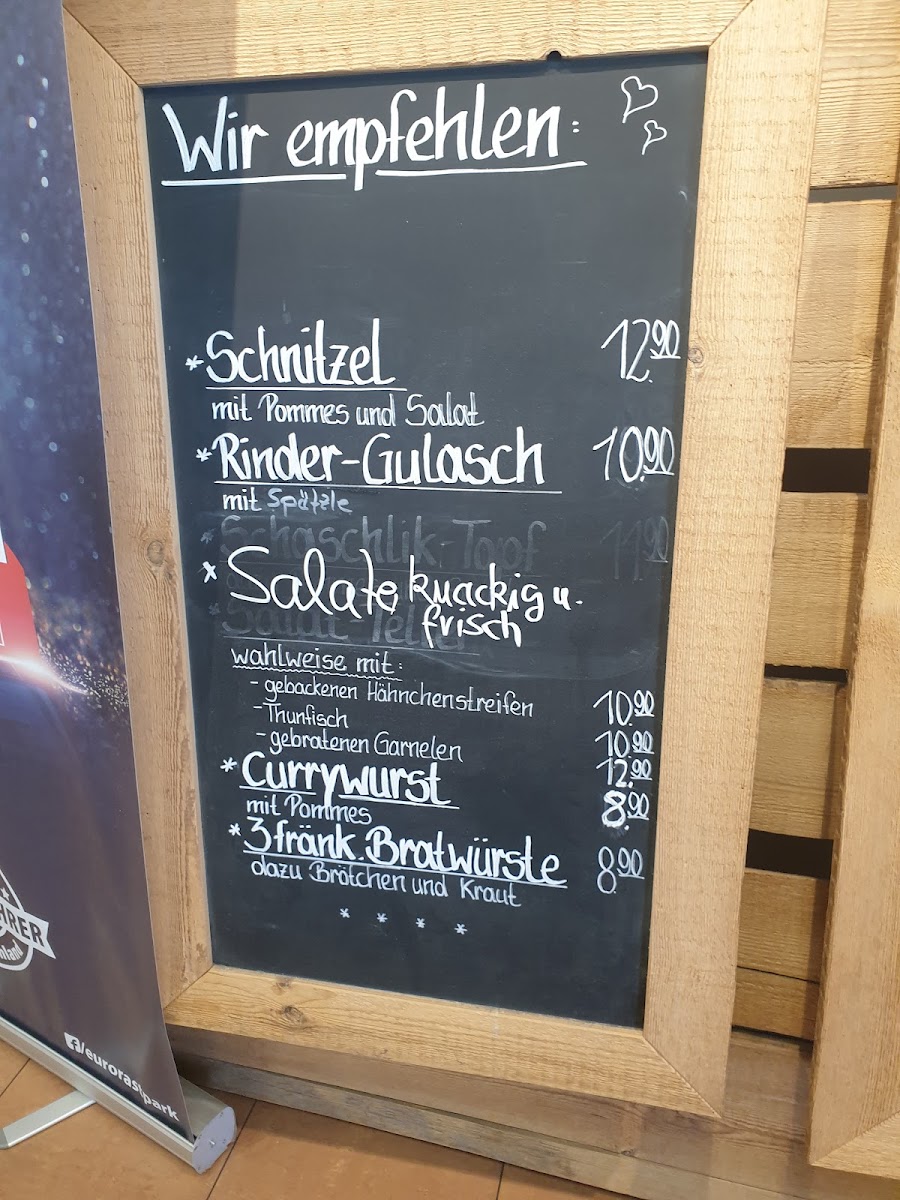 Wir empfehlen:
*Schnitzel 12.90
mit Pommes und Salat
*Rinder-Gulasch 10.90
mit Spätzle
Schaschlik-Topf 11.90
* Salate knackig u.
frisch
wahlweise mit:
- gebackenen Hähnchenstreifen 10.90
- Thunfisch 10.90
- gebratenen Garnelen 12.90
*Currywurst 8.90
mit Pommes
*3 fränk. Bratwürste 8.90
dazu Brötchen und Kraut
* * * *
/eurorastpark